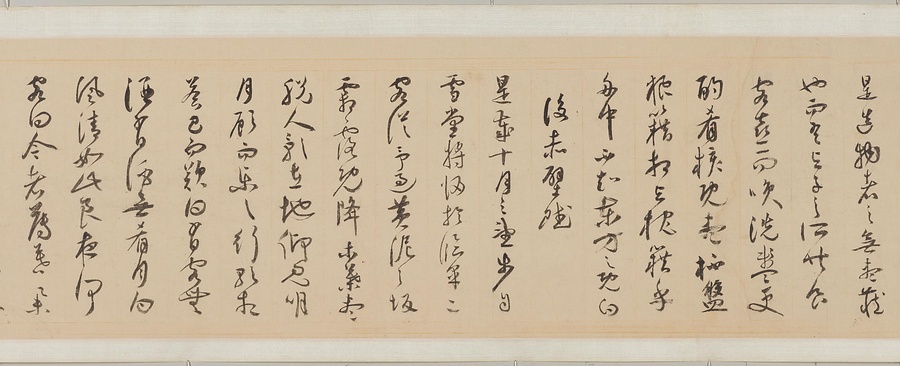 是造物者之無盡藏
也而吾與子之所共食
客喜而咲洗盞更
酌肴核既盡杯盤
狼籍相與枕籍乎
舟中不知東方之既白
後赤壁賦
是歲十月之望步自
雪堂將歸於臨皋二
客從予過黃泥之坂
霜露既降木葉盡
脫人影在地仰見明
月顧而樂之行歌相
答已而歎曰有客無
酒有酒無肴月白
風清如此良夜何
客曰今者薄暮舉